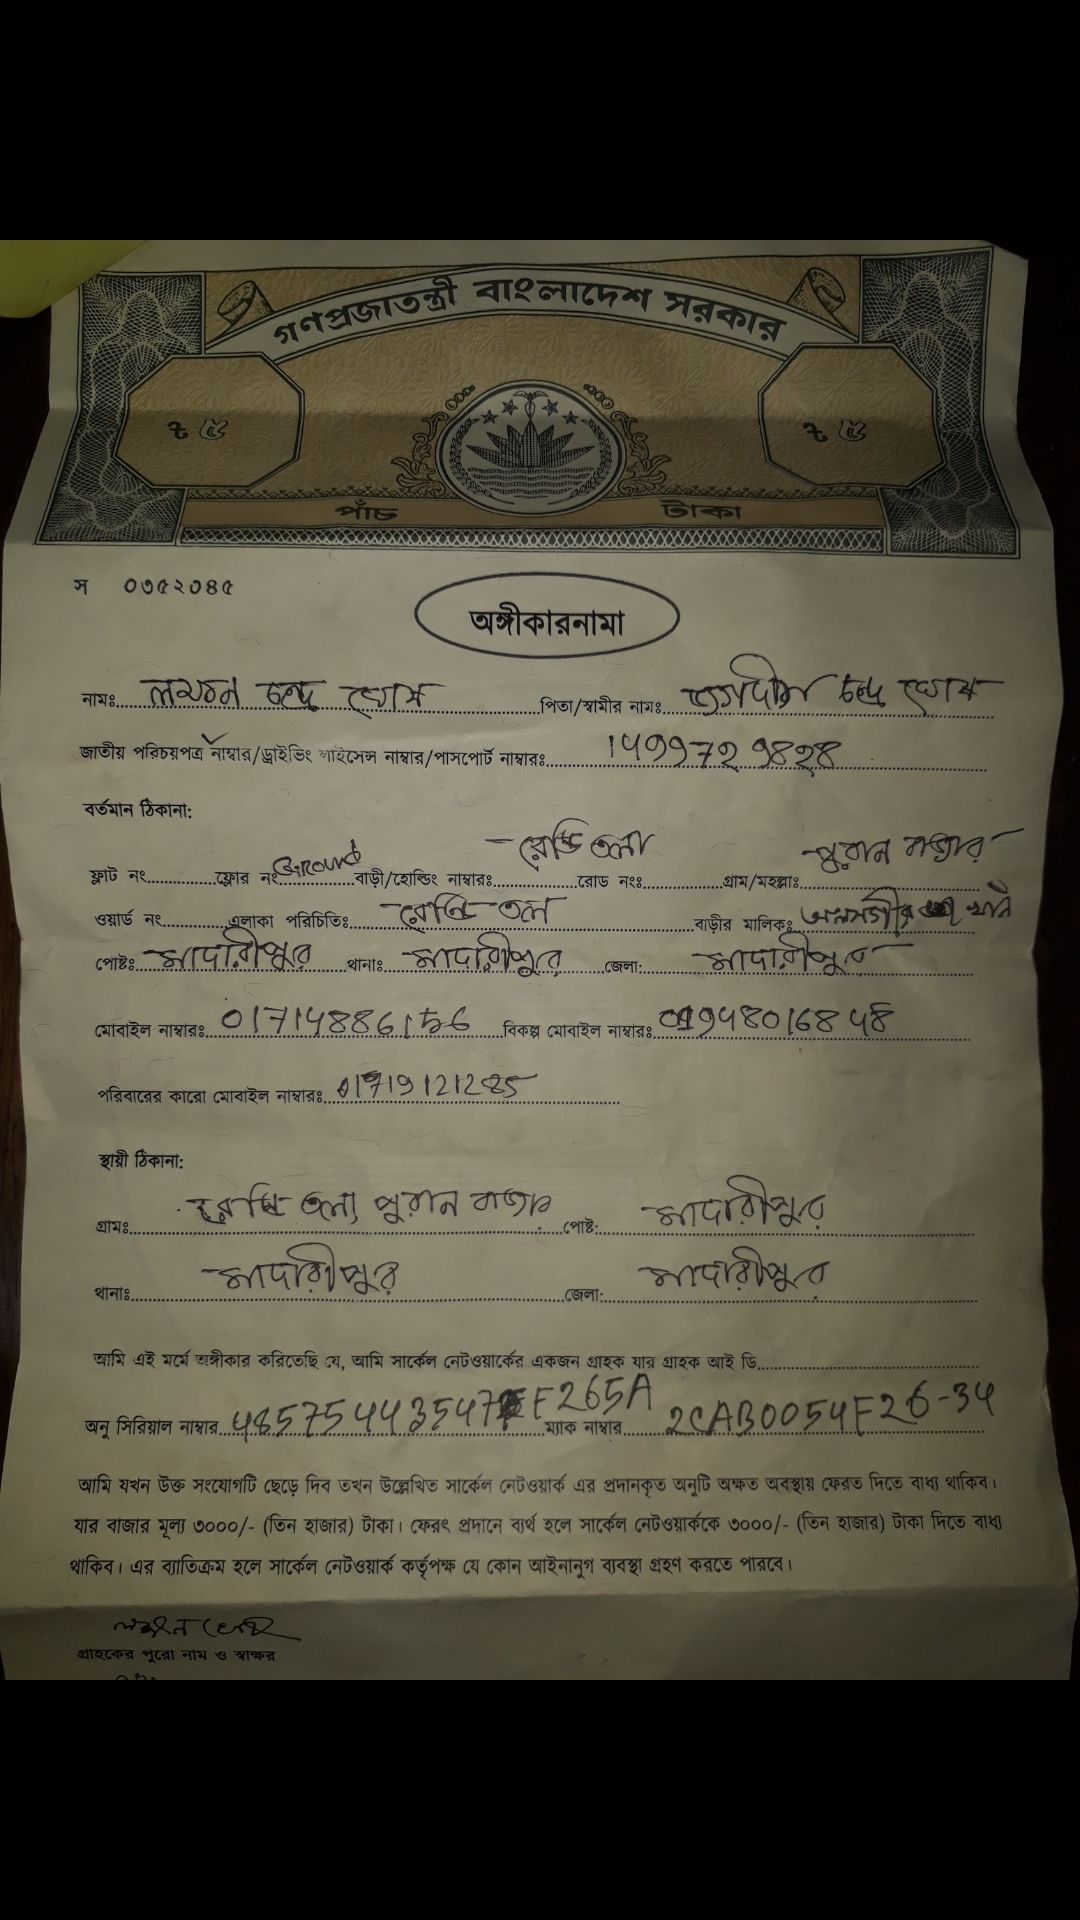 গণপ্রজাতন্ত্রী বাংলাদেশ সরকার
৳ ৫ ৳ ৫
পাঁচ টাকা
স ০৩৫২০৪৫
অঙ্গীকারনামা
নামঃ চন্দ্র ঘোষ পিতা/স্বামীর নামঃ জগদীশ চন্দ্র ঘোষ
জাতীয় পরিচয়পত্র নাম্বার/ড্রাইভিং লাইসেন্স নাম্বার/পাসপোর্ট নাম্বারঃ
বর্তমান ঠিকানা:
ফ্লাট নং ফ্লোর নং Ground বাড়ী/হোল্ডিং নাম্বারঃ রোড নংঃ গ্রাম/মহল্লাঃ পুরান বাজার
ওয়ার্ড নং এলাকা পরিচিতিঃ বাড়ীর মালিকঃ খান
পোষ্টঃ মাদারীপুর থানাঃ মাদারীপুর জেলা: মাদারীপুর
মোবাইল নাম্বারঃ বিকল্প মোবাইল নাম্বারঃ
পরিবারের কারো মোবাইল নাম্বারঃ
স্থায়ী ঠিকানা:
গ্রামঃ পুরান বাজার পোষ্ট: মাদারীপুর
থানাঃ মাদারীপুর জেলা: মাদারীপুর
আমি এই মর্মে অঙ্গীকার করিতেছি যে, আমি সার্কেল নেটওয়ার্কের একজন গ্রাহক যার গ্রাহক আই ডি
অনু সিরিয়াল নাম্বার ম্যাক নাম্বার 2CAB0054F26-34
আমি যখন উক্ত সংযোগটি ছেড়ে দিব তখন উল্লেখিত সার্কেল নেটওয়ার্ক এর প্রদানকৃত অনুটি অক্ষত অবস্থায় ফেরত দিতে বাধ্য থাকিব।
যার বাজার মূল্য ৩০০০/- (তিন হাজার) টাকা। ফেরৎ প্রদানে ব্যর্থ হলে সার্কেল নেটওয়ার্ককে ৩০০০/- (তিন হাজার) টাকা দিতে বাধ্য
থাকিব। এর ব্যাতিক্রম হলে সার্কেল নেটওয়ার্ক কর্তৃপক্ষ যে কোন আইনানুগ ব্যবস্থা গ্রহণ করতে পারবে।
গ্রাহকের পুরো নাম ও স্বাক্ষর